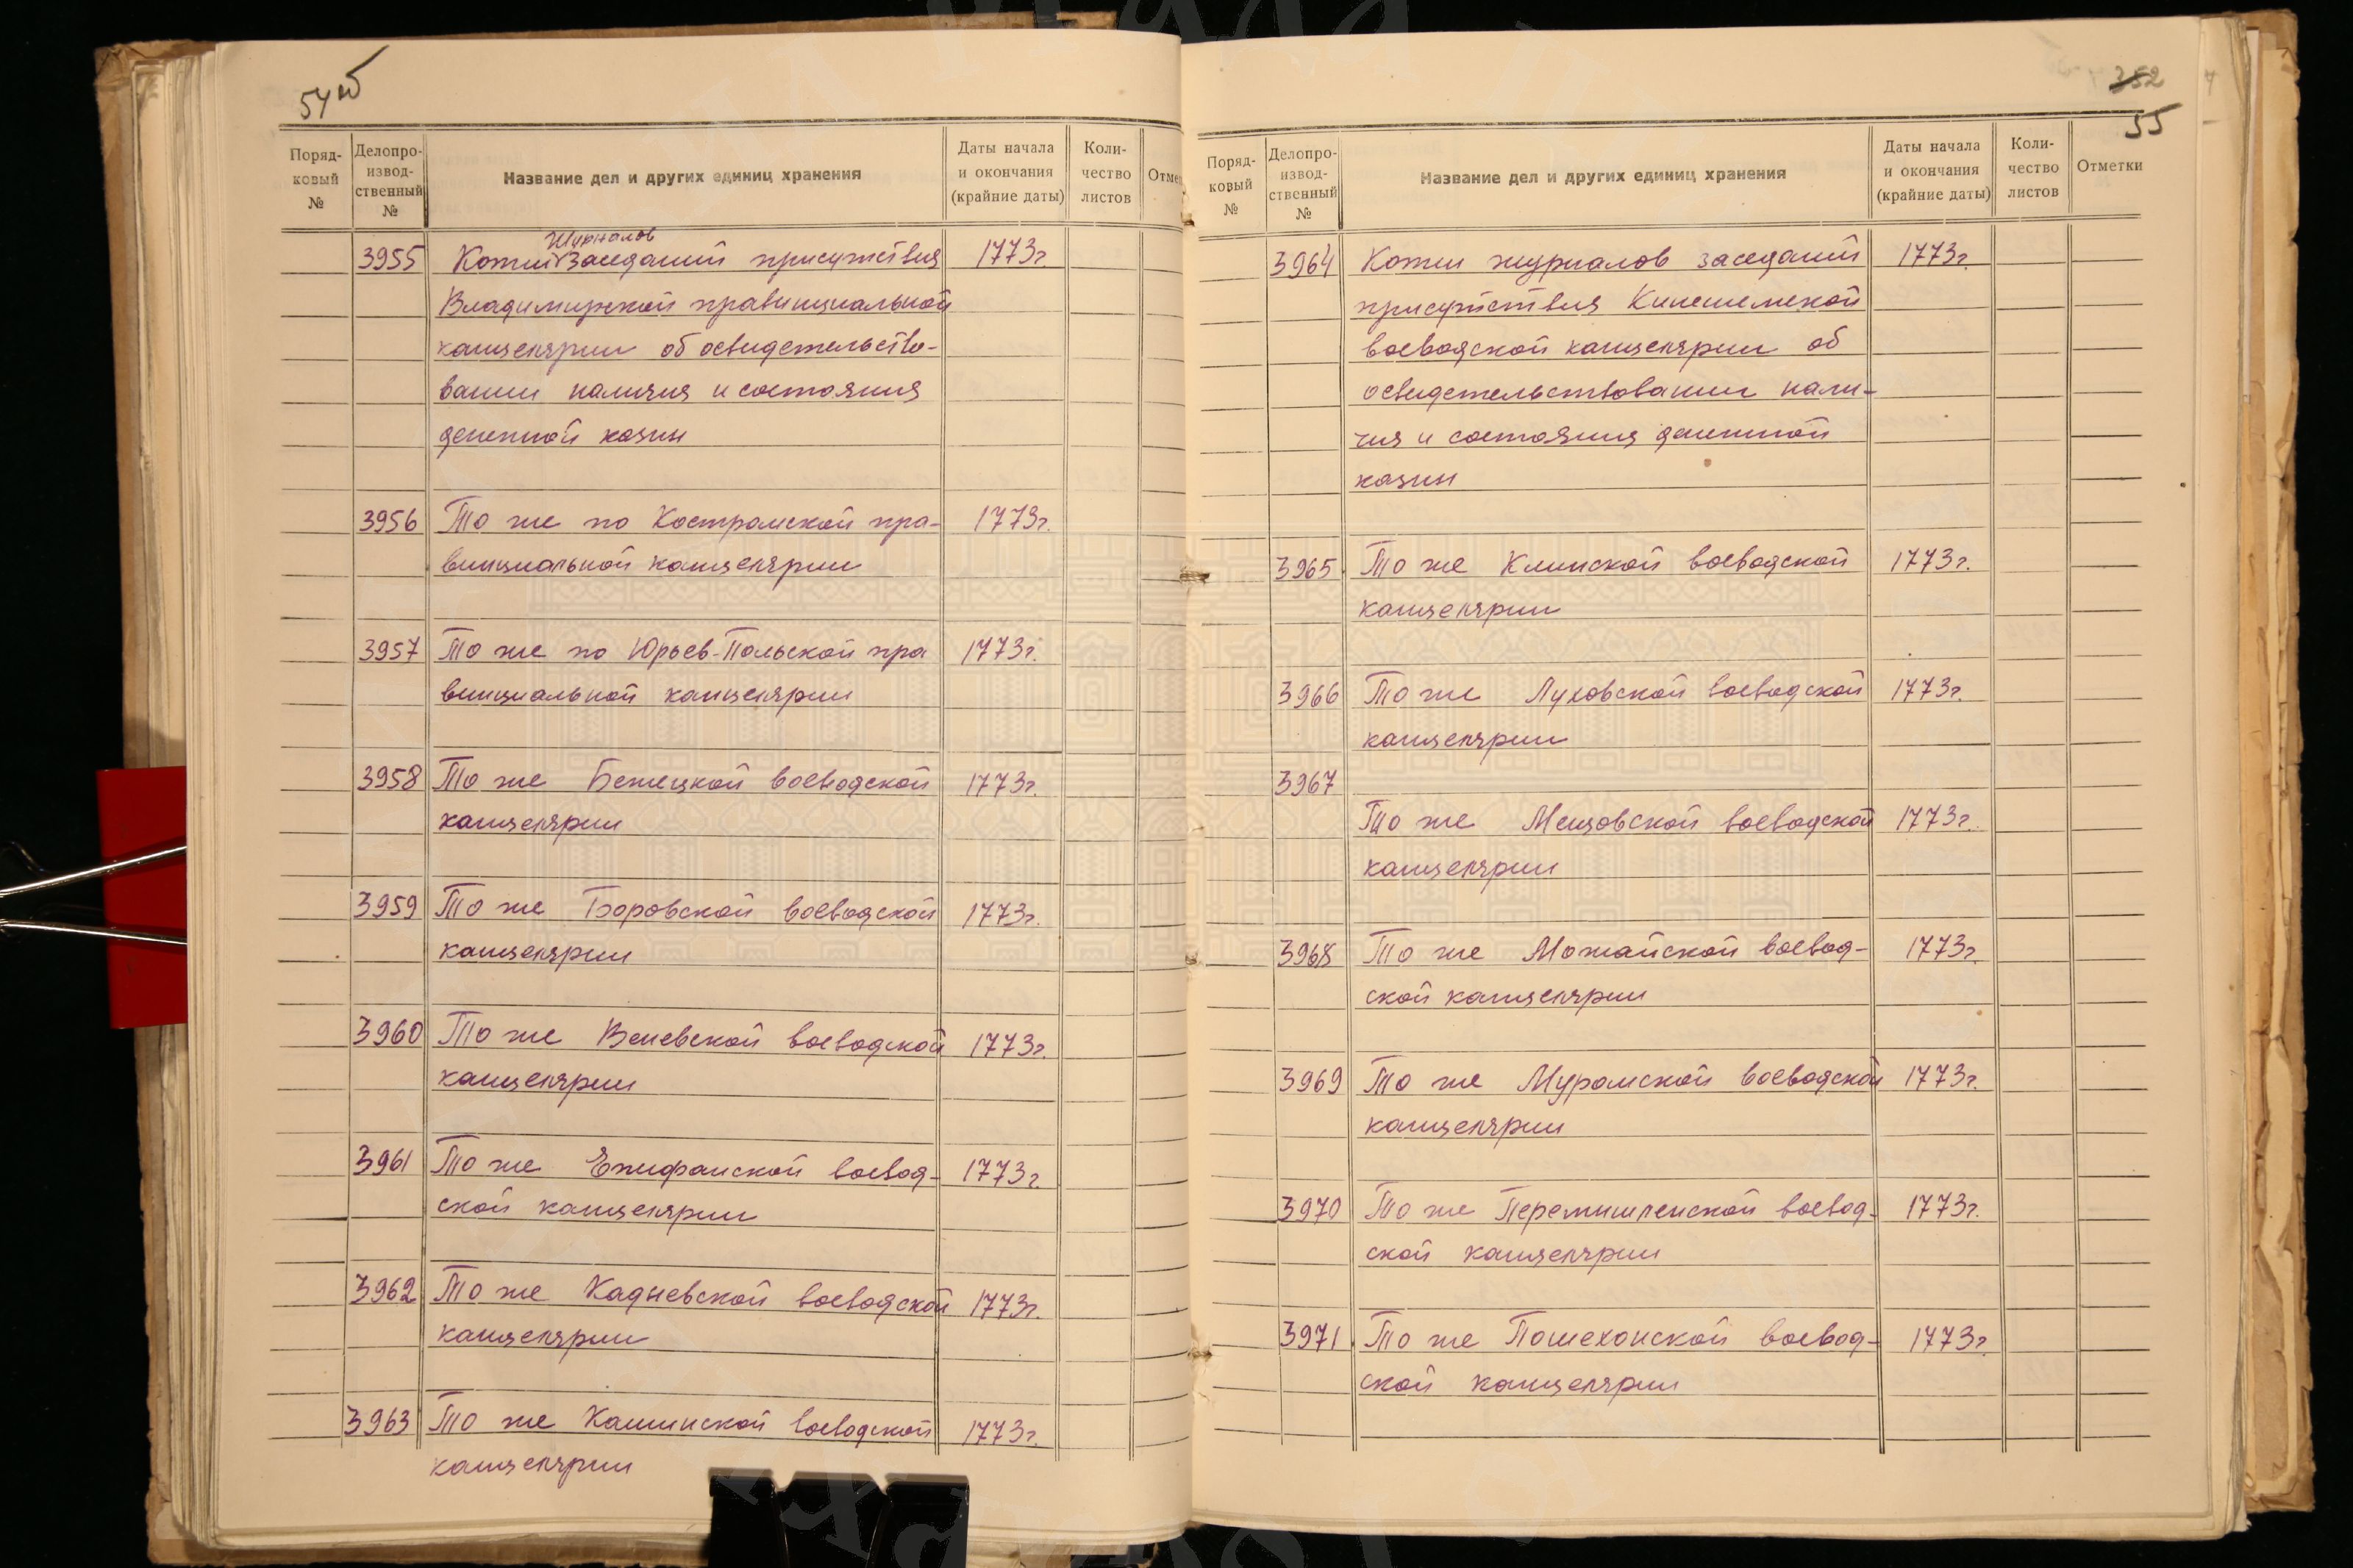 54об
Поряд-
ковый
№
Делопро-
извод-
ственный
№
Название дел и других единиц хранения
Даты начала
и окончания
(крайние даты)
Коли-
чество
листов
Отме
журналов
3955 Копии заседаний присутствия 1773г
Владимирской правинциальной
канцелярии об освидетельство-
вании наличия и состояния
денежной казны
3956 То же по Костромской пра- 1773г.
винциальной канцелярии
3957 То же по Юрьев-Польской пра 1773г.
винциальной канцелярии
3958 То же Бежецкой воеводской 1773г.
канцелярии
3959 То же Боровской воеводской 1773г.
канцелярии
3960 То же Веневской воеводской 1773г.
канцелярии
3961 То же Епифанской воевод- 1773г.
ской канцелярии
3962 То же Кадыевской воеводской 1773г.
канцелярии
3963 То же Кашинской воеводской 1773г.
канцелярии
352
55
Поряд-
ковый
№
Делопро-
извод-
ственный
№
Название дел и других единиц хранения
Даты начала
и окончания
(крайние даты)
Коли-
чество
листов
Отметки
3964 Копии журналов заседаний 1773г.
присутствия Кинешемской
воеводской канцелярии об
освидетельствовании нали-
чия и состояния денежной
казны
3965 То же Клинской воеводской 1773г.
канцелярии
3966 То же Луховской воеводской 1773г.
канцелярии
3967
То же Мещовской воеводской 1773г.
канцелярии
3968 То же Можайской воевод- 1773г.
ской канцелярии
3969 То же Муромской воеводской 1773г.
канцелярии
3970 То же Перемышленской воевод- 1773г.
ской канцелярии
3971 То же Пошехонской воевод- 1773г.
ской канцелярии